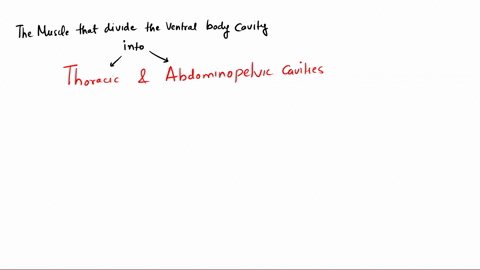 The Muscle that divide the Ventral body Cavity
into
Thoracic & Abdominopelvic Cavities